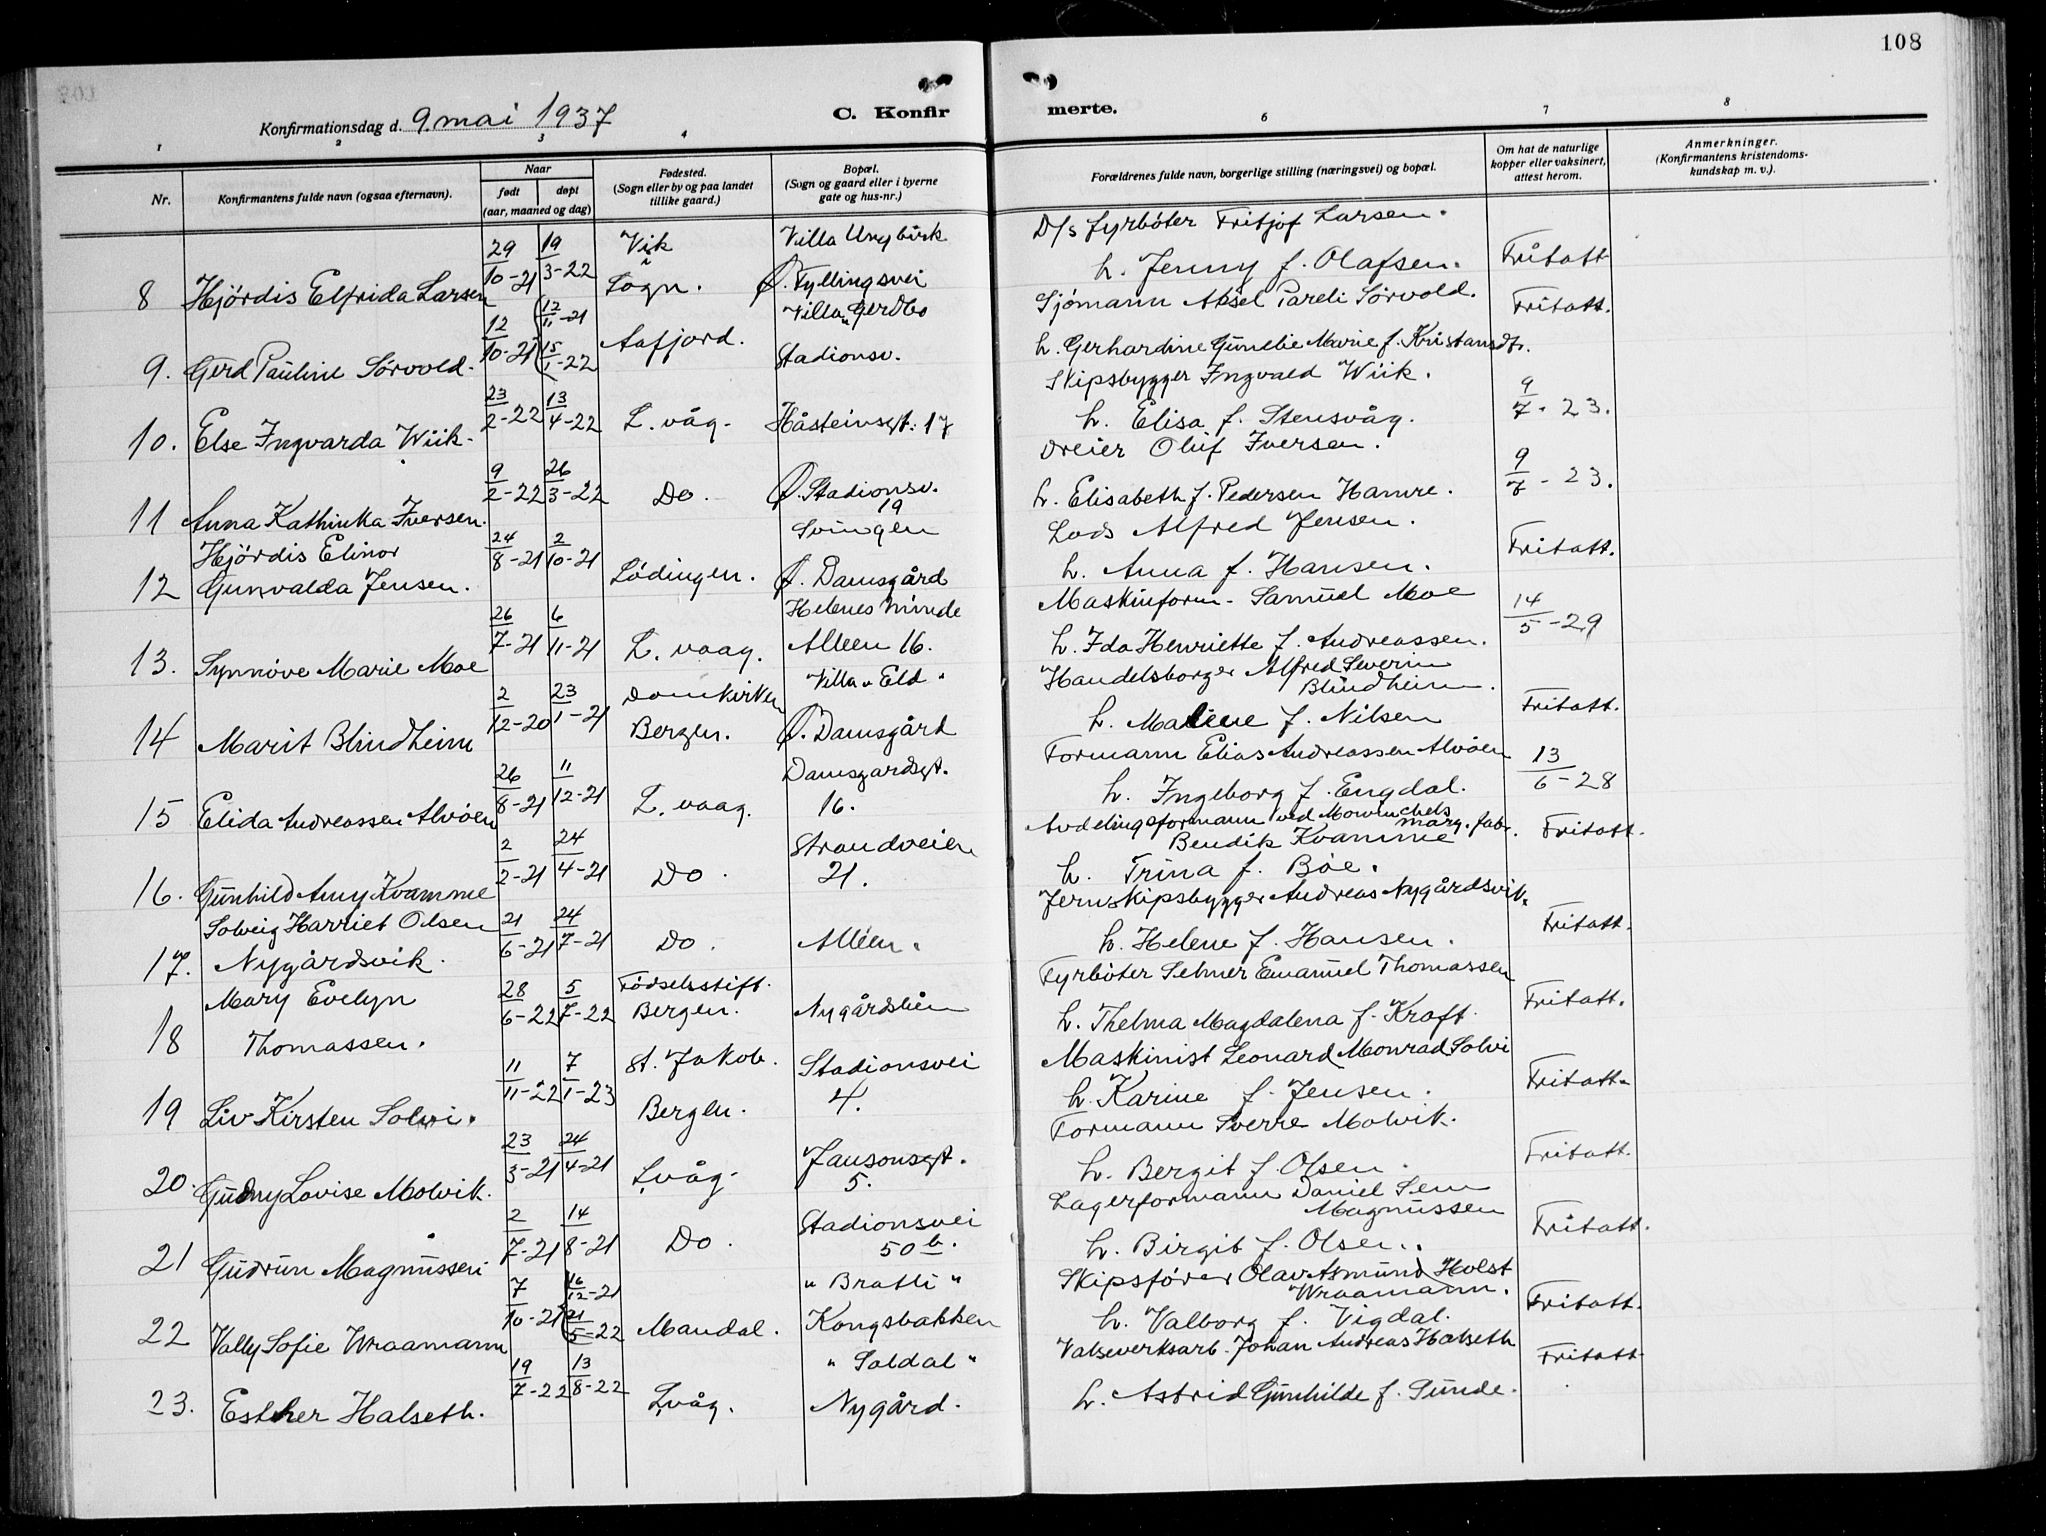 108
Konfirmationsdag d. 9. mai 1937
C. Konfirmerte.
1 2 3 4 6 7 8
Nr. Konfirmantens fulde navn (ogsaa efternavn). Naar født døpt (aar, maaned og dag) Fødested. (Sogn eller by og paa landet tillike gaard.) Bopæl. (Sogn og gaard eller i byerne gate og hus-nr.) Forældrenes fulde navn, borgerlige stilling (næringsvei) og bopæl. Om hat de naturlige kopper eller vaksinert, attest herom. Anmerkninger. (Konfirmantens kristendomskundskap m. v.).
8 Hjördis Elfrida Larsen 29/10-21 19/3-22 Vik i Sogn. Villa Ø. Fyllingsvei D/s fyrböter Fritjof Larsen. h. Jenny f. Olafsen. Fritatt
9. Gerd Pauline Sörvold. 12/10-21 (12/11-21 15/1-22 Aafjord. Villa "Gerdbo Stadionsv. Sjömann Aksel Pareli Sörvold. h. Gerhardine Gunelie Marie f. Kristansdtr. Fritatt.
10. Else Ingvarda Wiik. 23/2-22 13/4-22 L. våg. Håsteinsgt. 17 Skipsbygger Ingvald Wiik. h. Elisa f. Stensvåg. 9/7-23.
11 Anna Kathinka Iversen. 9/2-22 26/3-22 Do. Ø. Stadionsv. 19 Dreier Oluf Iversen. h. Elisabeth f. Pedersen Hamre. 9/7-23.
12 Hjördis Elinor Gunvalda Jensen. 24/8-21 2/10-21 Lödingen. Svingen Ø. Damsgård Lods Alfred Jensen. h. Anna f. Hansen. Fritatt.
13. Synnöve Marie Moe 26/7-21 6/11-21 L. vaag. Helenes Minde Alleen 16. Maskinform. Samuel Moe h. Ida Henriette f. Andreassen. 14/5-29
14 Marit Blindheim 2/12-20 23/1-21 Domkirken Bergen. Villa "Eld" Ø. Damsgård Handelsborger Alfred Severin Blindheim. h. Malene f. Nilsen Fritatt.
15 Elida Andreassen Alvöen 26/8-21 11/12-21 L. vaag. Damsgardsgt. 16. Formann Elias Andreassen Alvöen h. Ingeborg f. Engdal. 13/6-28
16. Gunhild Amy Kvamme 2/2-21 24/4-21 Do. Strandveien 21. Avdelingsformann ved Mowinckels marg. fabr. Bendik Kvamme h. Trina f. Böe. Fritatt.
17. Solveig Harriet Olsen Nygårdsvik. 21/6-21 24/7-21 Do. Alléen. Jernskipsbygger Andreas Nygårdsvik. h. Helene f. Hansen. Fritatt.
18 Mary Evelyn Thomassen. 28/6-22 5/7-22 Födselsstift. Bergen. Nygårdslien Fyrböter Selmer Emanuel Thomassen h. Thelma Magdalena f. Kraft. Fritatt.
19 Liv Kirsten Solvi. 11/11-22 7/1-23 St. Jakob. Bergen. Stadionsvei 4. Maskinist Leonard Monrad Solvi h. Karine f. Jensen. Fritatt.
20. Gudny Lovise Molvik. 23/3-21 24/4-21 L.våg. Jansonsgt. 5. Formann Sverre Molvik. h. Bergit f. Olsen. Fritatt.
21 Gudrun Magnussen 2/7-21 14/8-21 Do. Stadionsvei 50 b. Lagerformann Daniel Sem Magnussen h. Birgit f. Olsen. Fritatt.
22 Vally Sofie Wraamann 7/10-21 (16/12-21 21/5-22 Mandal. "Bratli" Kongsbakken Skipsförer Olav Asmund Holst Wraamann. h. Valborg f. Vigdal. Fritatt.
23. Esther Halseth. 19/7-22 13/8-22 L.våg. "Soldal" Nygård. Valseverksarb. Johan Andreas Halseth h. Astrid Gunhilde f. Sunde. Fritatt